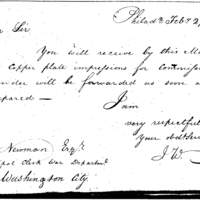 Philada Feby 2
Sir
You will receive by this Ma
Copper plate impressions for Commiss
nder will be forwarded as soon a
epared —
I am
very respectful
your obdt Ser
J W
Newman Esqr
Clerk War Departmt
Washington City